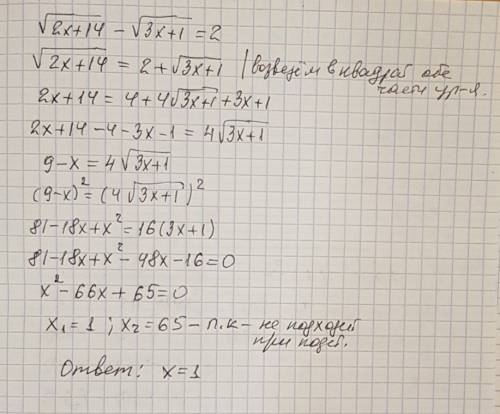 √(2x+14) - √(3x+1) = 2
√(2x+14) = 2 + √(3x+1) | возведём в квадрат обе
части ур-я.
2x+14 = 4+4√(3x+1) + 3x+1
2x+14-4-3x-1 = 4√(3x+1)
9-x = 4√(3x+1)
(9-x)² = (4√(3x+1))²
81-18x+x² = 16(3x+1)
81-18x+x²-48x-16=0
x²-66x+65=0
x₁=1 ; x₂=65 - п.к - не подходит
при подст.
Ответ: x=1